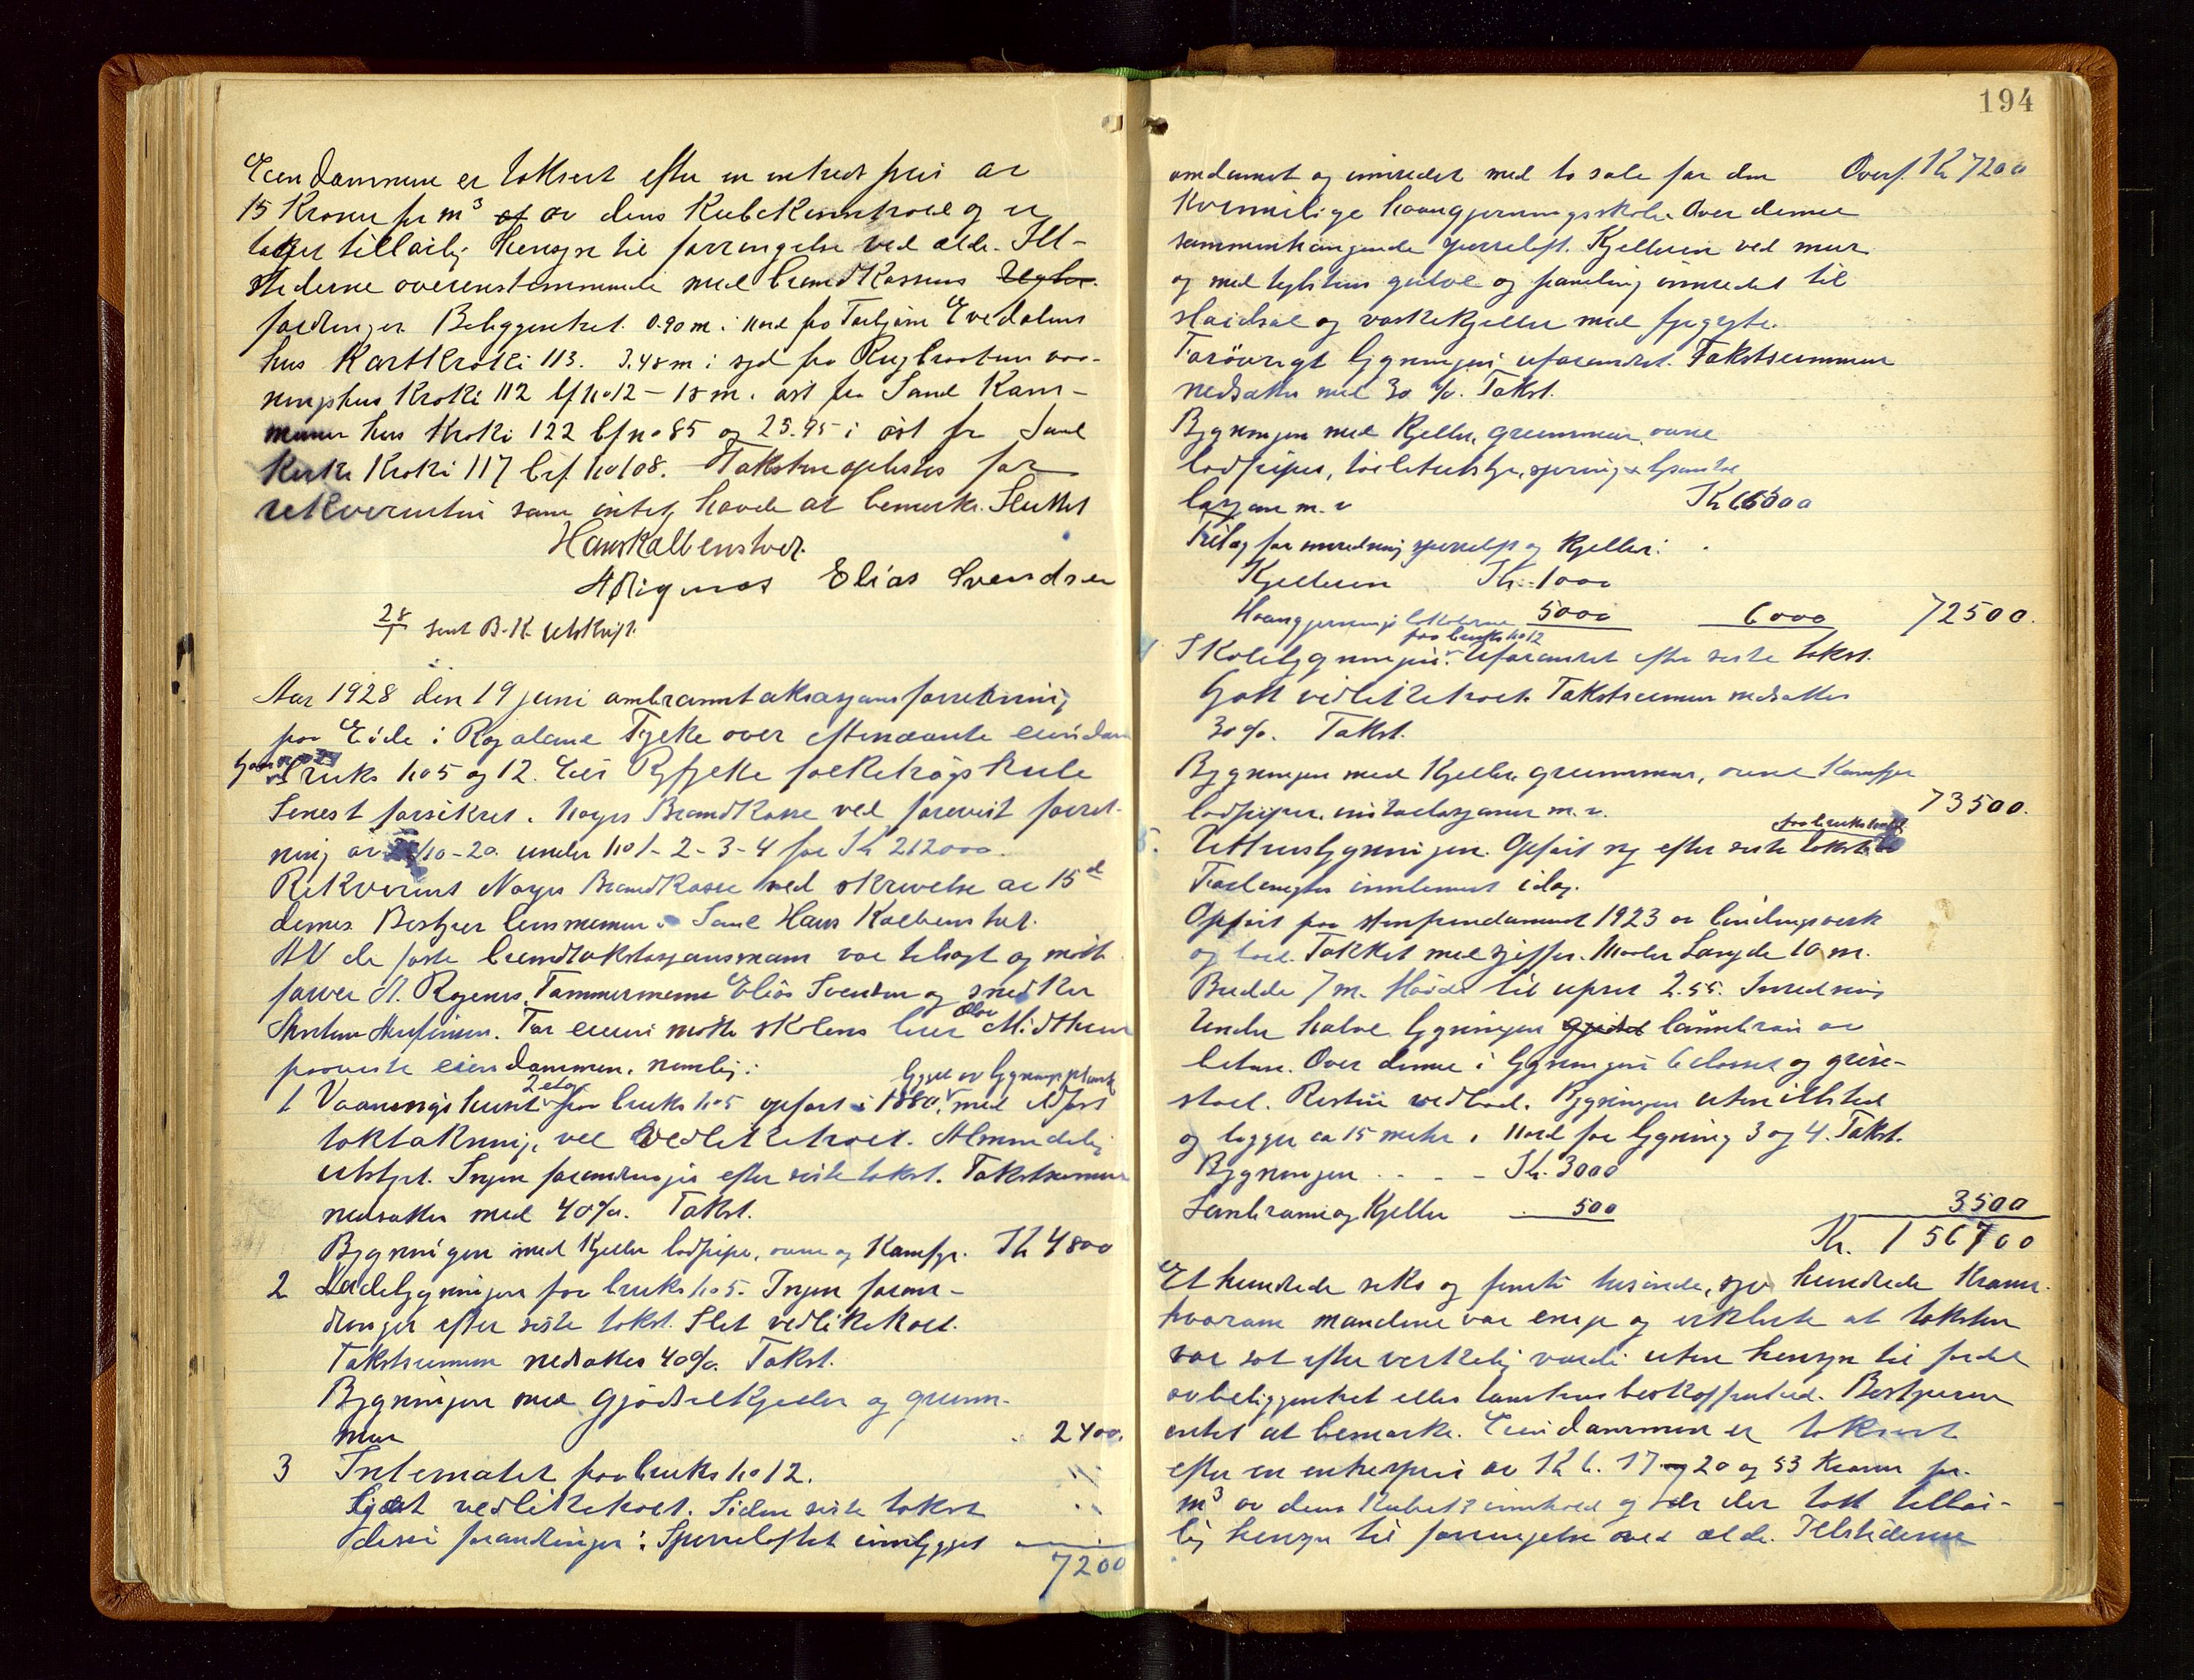 Eiendommene er taksert efter en enhets pris av
15 Kroner pr m³ av dens Kubikkinnhold og er
taget tilbørlig hensyn til forringelse ved ælde. Ild-
stederne overensstemmende med brandkassens
fordringer. Beliggenhet. 0.90 m i nord fra Torbjørn Evedalens
hus Kartkroki 113. 3.48 m i syd fra Rugbrøtnes vaa-
ningshus Kroki 112 bf no 12 – 18 m. øst fra Sand Kom-
munes hus Kroki 122 bf no 85 og 25.95 i øst fr Sand
Kirke Kroki 117 brf. no 108. Taksten oplestes for
rekverenten som intet havde at bemerke. Sluttet
Hans Kalbenstvedt.
A Rignæs Elias Svendsen
28/7 sent B.K. utskrift.
Aar 1928 den 19 juni ombranntaksasjonsforretning
paa Eide i Rogaland Fylke over eftenævnte eiendom
bruks no 5 og 12. Eier Ryfylke folkehøgskule
Senest forsikret i Norges Brandkasse ved foreviist forret-
ning av /10-20 under no 1-2-3-4 for Kr 212000.
Rekvirent Norges Brandkasse ved skrivelse av 15d
dennes. Bestyrer lensmannen i Sand Hans Kalbenstvet.
AV de faste branntakstasjonsmænn var tilsagt og møtt
farver A. Rogenes, Tømmermenn Elias Svendsen og snedker
For eieren møtte skolens lærer Olav Midthun
paaviste eiendommen, nemlig:
1 Vaaningshuset 2 etage paa bruks no 5 opført i 1880, bygget av bygningsplank med skifer
taktækning, vel vedlikeholdt. Almindelig
utstyrt. Ingen forandringer efter siste takst. Takstsummen
nedsættes med 40%. Takst.
Bygningen med Kjeller lodpipe, ovne og Komfyr. Kr 4800
2 Ladebygningen paa bruks no 5. Ingen foran-
dringer efter siste takst. Slet vedlikeholdt.
Takstsummen nedsattes 40%. Takst.
Bygningen med gjødselkjeller og grunn-
mur 2400.
3 Internatet paa bruks no 12.
Godt vedlikeholdt. Siden siste takst
disse forandringer: Sperreloftet innbygget
7200
194
omdannet og innredet med to sale for den Overf. Kr 7200
Kvinnelige haandgjerningsskole. Over denne
sammenhængende sperreloft. Kjelleren ved mur
og med teglstens gulve og paneling innredet til
sløidsal og vaskekjeller med frygryte.
Forøvrigt bygningen uforandret. Takstsummen
nedsættes med 30 %. Takst.
Bygningen med Kjeller, grunnmur, ovne
lodpiper, toiletutstyr,
m. v Kr 66500
Tillæg for innredning sperreloft og Kjeller:
Kjelleren Kr. 1000
Haandgjernings lokalerne 5000 6000 72500.
4 Skolebygningen paa bruks no 12. Uforandret efter siste takst.
Godt vedlikeholdt. Takstsummen nedsattes
30%. Takst.
Bygningen med Kjeller, grunnmur, ovne Komfyr
lodpiper, installasjoner m. v. 73500.
5. Uthusbygningen paa bruks no 12. Opført ny efter siste takst
Forlanges innlemmet idag.
Opført paa stenfundament 1923 av bindingsverk
og bord. Takket med skiffer. Maaler Længde 10 m.
Bredde 7 m. Høide til upsen 2.55. Innredning
Under halve bygningen lannbrønn av
beton. Over denne i bygningen 6 closet og grise-
stall. Resten vedbod. Bygningen uten ildsted
og ligger ca 15 meter i nord for bygning 3 og 4. Takst.
Bygningen - - - Kr. 3000
Lannbrønn og Kjeller 500 3500
Kr. 156700
Et hundrede seks og femti tusinde, syv hundrede Kroner.
hvorom mændene var enige og erklærte at taksten
var sat efter verkelig værdi uten hensyn til fordel
av beliggenhet eller tomtens beskaffenhed. Bestyreren
intet at bemerke. Eiendommen er taksert
efter en enhetspris av Kr 6. 17 20 og 53 Kroner pr.
m³ av dens Kubikkinnhold og er der tatt tilbør-
lig hensyn til forringelse ved ælde. Ildstederne